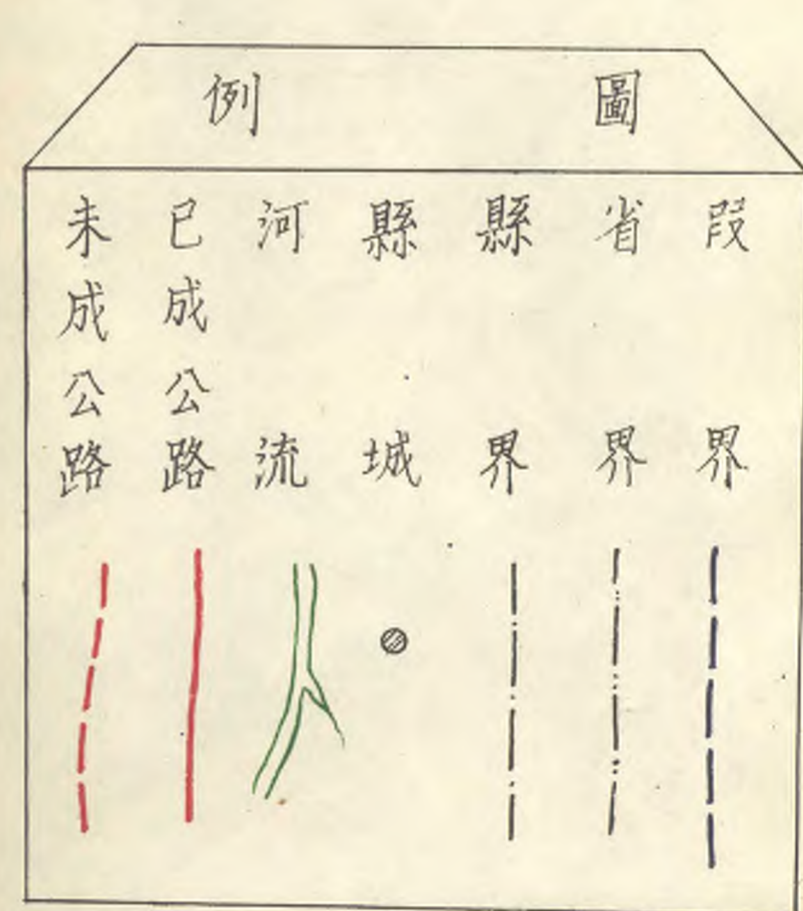 圖例
段界
省界
縣界
縣城
河流
已成公路
未成公路